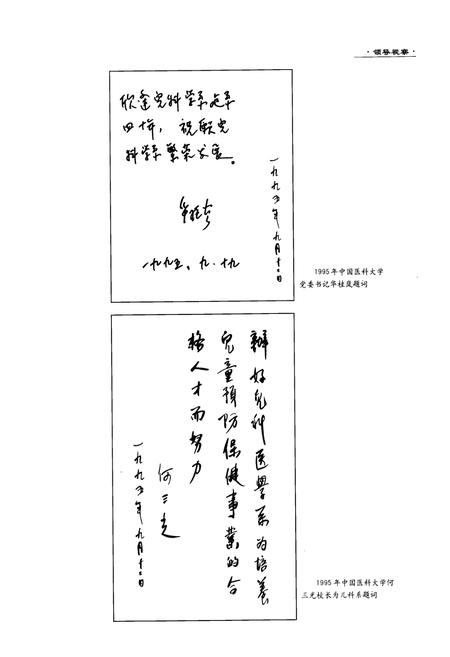 ·领导视察·
欣逢儿科学系建系
四十年，祝愿儿
科学系繁荣发展。
一九九五、九·十九
一九九五年九月十二日
1995年中国医科大学
党委书记华桂茂题词
辦好儿科医学系为培养
兒童預防保健事業的合
格人才而努力
何三光
一九九五年九月十二日
1995年中国医科大学何
三光校长为儿科系题词